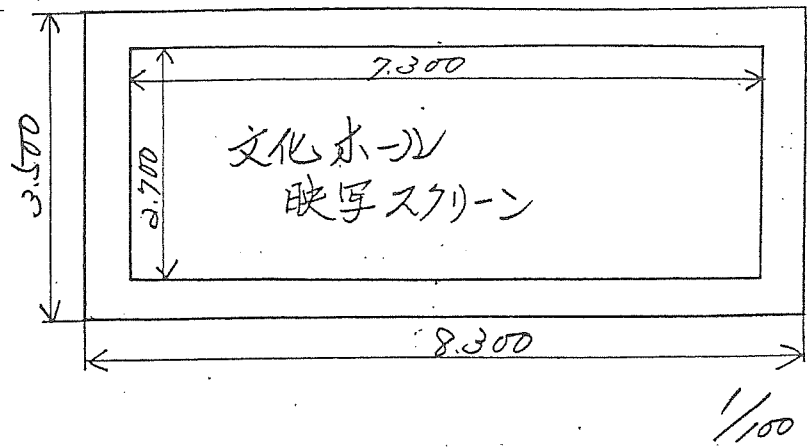 7.300
3.500
2.700
文化ホール
映写スクリーン
8.300
1/100